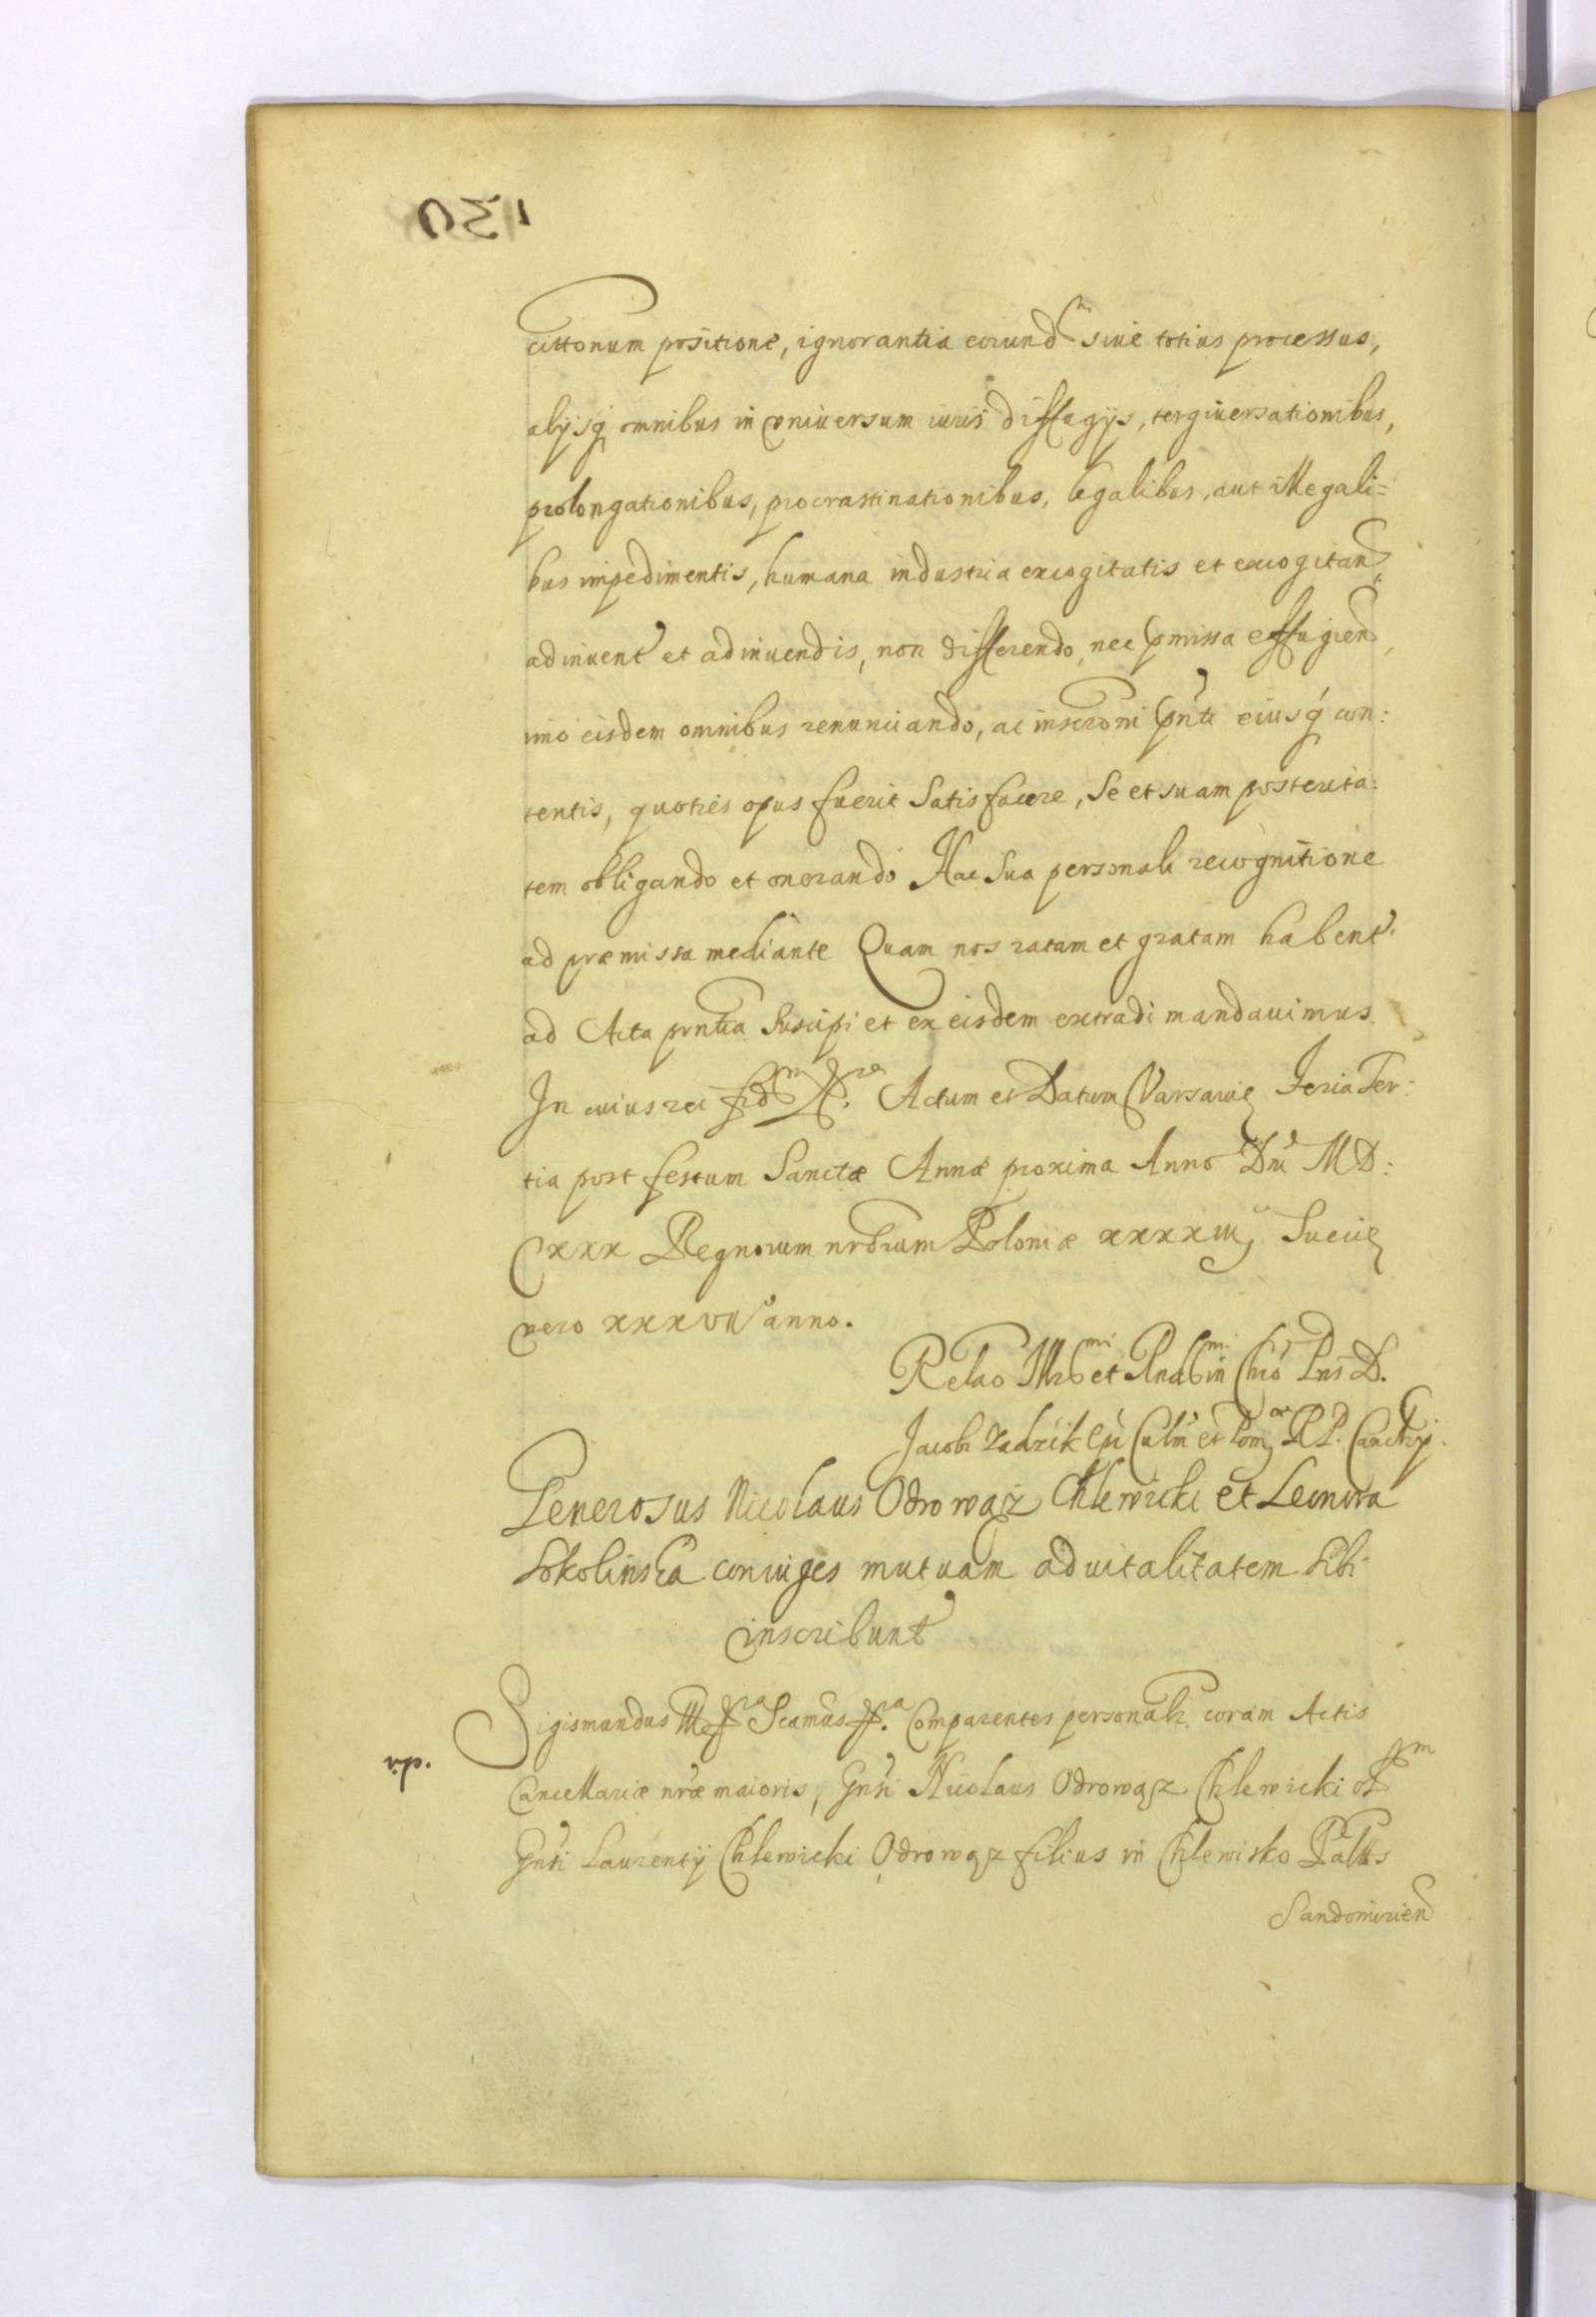 130
cittonum positione, ignorantia eorund m siue totius processus,
alijsq omnibus in vniuersum iuris diffugijs, tergiuersationibus,
prolongationibus, procrastinationibus, legalibus, aut illegali=
bus impedimentis, humana industria excogitatis et excogitand
adinuent et adinuendis, non differendo, nec pmissa effugiend,
imo eisdem omnibus renunciando, ac inscroni pnti eiusq con:
tentis, quoties opus fuerit Satisfacere, Se et suam posterita:
tem obligando et onerando Hac Sua personali recognitione
ad præmissa mediante Quam nos ratam et gratam habent
ad Acta pntia Suscipi et ex eisdem extradi mandauimus
In cuius rei fid m Actum et Datum Varsauię Feria Ter:
tia post festum Sanctæ Annæ proxima Anno Dni MD:
Cxxx Regnorum nrorum Poloniæ xxxxiij Suecię
vero xxxvii anno.
Relao Illrs mi et Rnds mi in Chro Pris D.
Jacobi Zadzik Epi Culm et Pom æ R P. Cancrij.
Generosus Nicolaus Odrowąż Chlewicki et Leonora
Sokolinska coniuges mutuam aduitalitatem Sibi
inscribunt
Sigismundus III Scamus Comparentes personalr coram Actis
Cancellariæ nræ maioris, Gnsi Nicolaus Odrowąz Chlewicki ol m
Gnsi Laurentij Chlewicki Odrowąz filius in Chlewisko Pałtus
Sandomirien